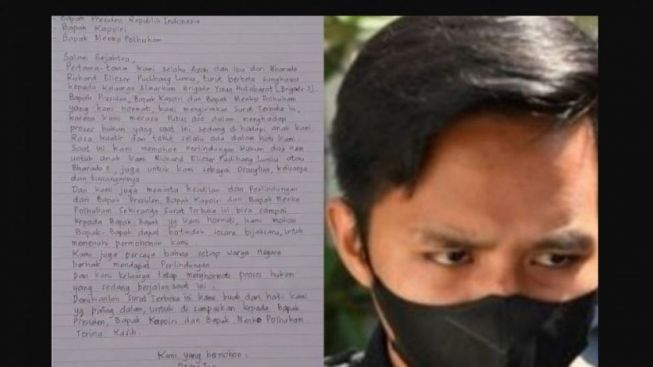 - Bapak Presiden Republik Indonesia
- Bapak Kapolri
- Bapak Menko Polhukam
Salam Sejahtera,
Pertama-tama kami selaku Ayah dan ibu dari Bharada
Richard Eliezer Pudihang Lumiu, turut berduka sungkawa
kepada keluarga Almarhum Brigadir Yosua Hutabarat (Brigadir J).
Bapak Presiden, Bapak Kapolri dan Bapak Menko Polhukam
yang kami hormati, kami mengirimkan Surat Terbuka ini,
karena kami merasa Putus asa dalam menghadapi
proses hukum yang saat ini sedang di hadapi anak kami
Rasa kuatir dan takut selalu ada dalam hati kami
Saat ini kami memohon Perlindungan Hukum dan
untuk anak kami Richard Eliezer Pudihang Lumiu atau
Bharada E, juga untuk kami sebagai Orangtua, keluarga
dan tunangannya
Dan kami juga meminta keadilan dan Perlindungan
dari Bapak Presiden, Bapak Kapolri dan Bapak Menko
Polhukam Sekiranya Surat Terbuka ini bisa sampai
kepada Bapak-Bapak yg kami hormati, kami mohon
Bapak-Bapak dapat bertindak secara bijaksana, untuk
memenuhi permohonan kami.
Kami juga percaya bahwa setiap warga Negara
berhak mendapat Perlindungan
Dan kami keluarga tetap menghormati proses hukum
yang sedang berjalan saat ini.
Demikianlah Surat Terbuka ini kami buat dari hati kami
yg paling dalam, untuk di sampaikan kepada Bapak
Presiden, Bapak Kapolri dan Bapak Menko Polhukam
Terima Kasih.
Kami yang bermohon: